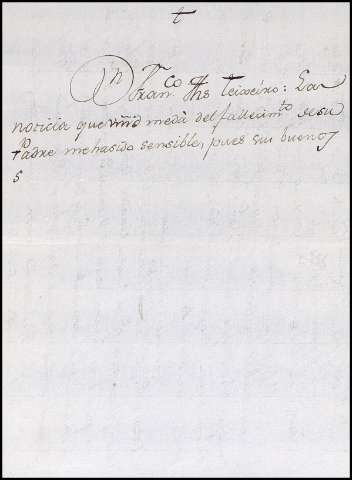 t
Dn Franco Ths teixeiro: La
noticia que vmd me dà del fallecimto de su
Padre me ha sido sensible, pues sus buenos
s